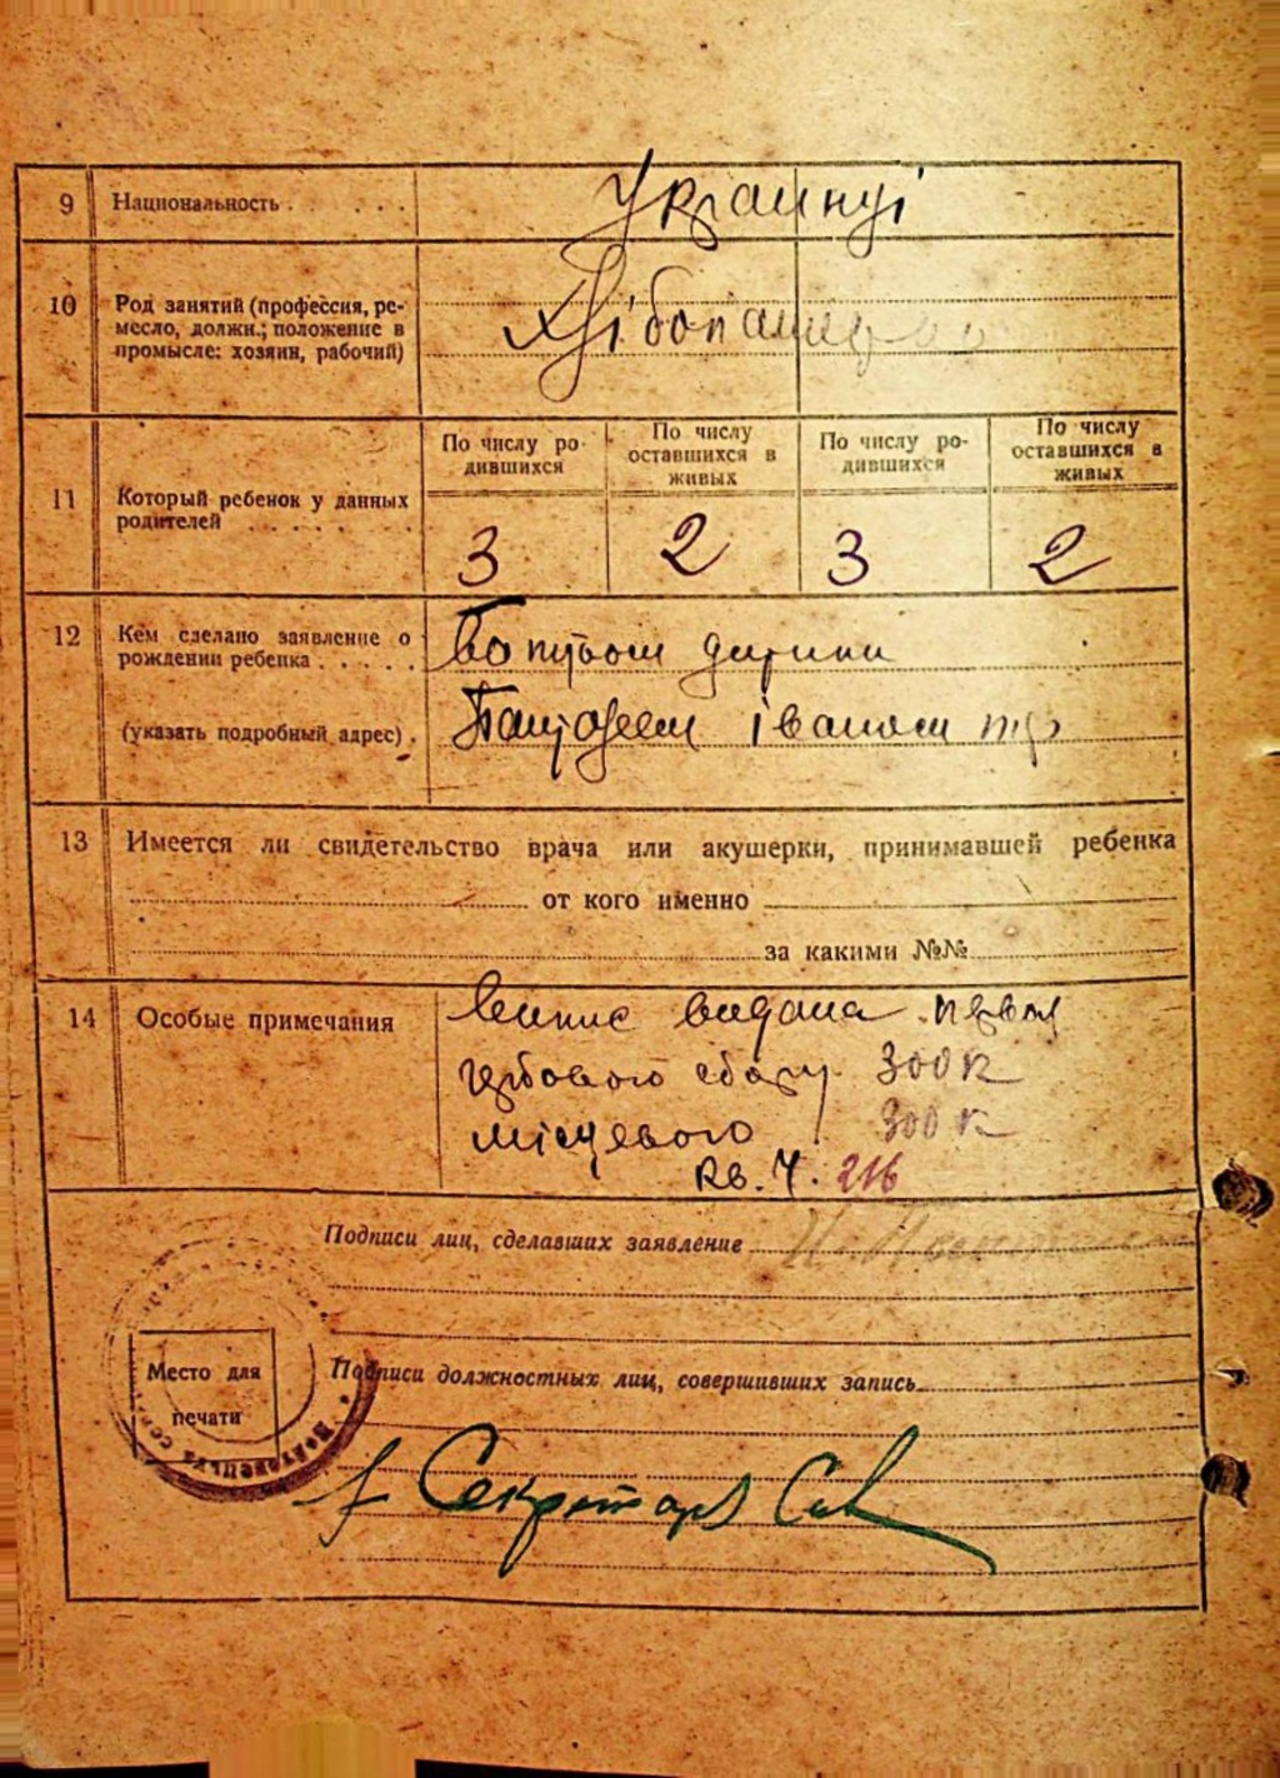 9 Национальность . . . . . Украинці
10 Род занятий (профессия, ре-
месло, должн.; положение в
промысле: хозяин, рабочий)
11 Который ребенок у данных
родителей . . . . . .
По числу ро-
дившихся
По числу
оставшихся в
живых
По числу ро-
дившихся
По числу
оставшихся в
живых
3 2 3 2
12 Кем сделано заявление о
рождении ребенка . . . . .
Батьком дитини
(указать подробный адрес) .
Іваном
13 Имеется ли свидетельство врача или акушерки, принимавшей ребенка
от кого именно
за какими №№
14 Особые примечания
Випис видана первая
гербового сбору 300 к
місцевого 300 к
Кв. Ч. 216
Подписи лиц, сделавших заявление
Место для
печати
Подписи должностных лиц, совершивших запись
Секретарь